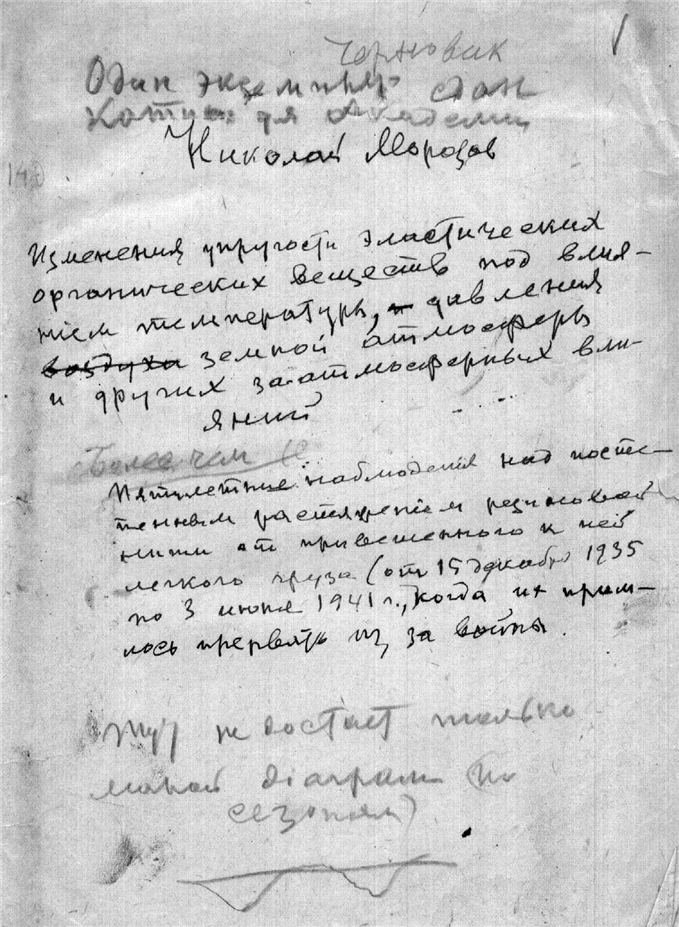 Черновик
Один экземпляр сдан
для Академии
Николай Морозов
Изменения упругости эластических
органических веществ под влия-
нием температуры, и давления
воздуха земной атмосферы
и других заатмосферных вли-
яний
Более чем
Пятилетние наблюдения над посте-
пенным растяжением резиновой
нити от привешенного к ней
легкого груза (от 15 декабря 1935
по 3 июня 1941 г., когда их приш-
лось прервать из за войны.
Тут не достает только
малой діаграмы (по
сезонам)